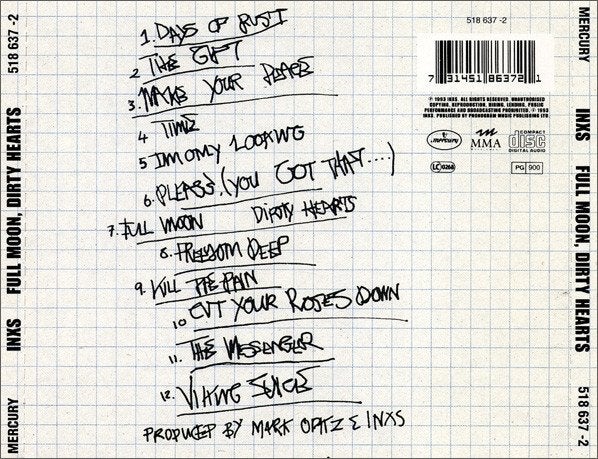 MERCURY
518 637 -2
INXS FULL MOON, DIRTY HEARTS
MERCURY
1. DAYS OF RUST
2 THE GIFT
3. MAKE YOUR PEACE
4 TIME
5 IM ONLY LOOKING
6. PLEASE. (YOU GOT THAT....)
7. FULL MOON DIRTY HEARTS
8. FREEDOM DEEP
9. KILL THE PAIN
10 CUT YOUR ROSES DOWN
11. THE MESSENGER
12. VIKING JUICE
PRODUCED BY MARK OPITZ & INXS
518 637 -2
7 31451 86372 1
℗ 1993 INXS. ALL RIGHTS RESERVED. UNAUTHORISED
COPYING, REPRODUCTION, HIRING, LENDING, PUBLIC
PERFORMANCE AND BROADCASTING PROHIBITED. © 1993
INXS. PUBLISHED BY PHONOGRAM MUSIC PUBLISHING LTD.
mercury
MMA
COMPACT
disc
DIGITAL AUDIO
LC 0268
PG 900
INXS FULL MOON, DIRTY HEARTS
518 637 -2